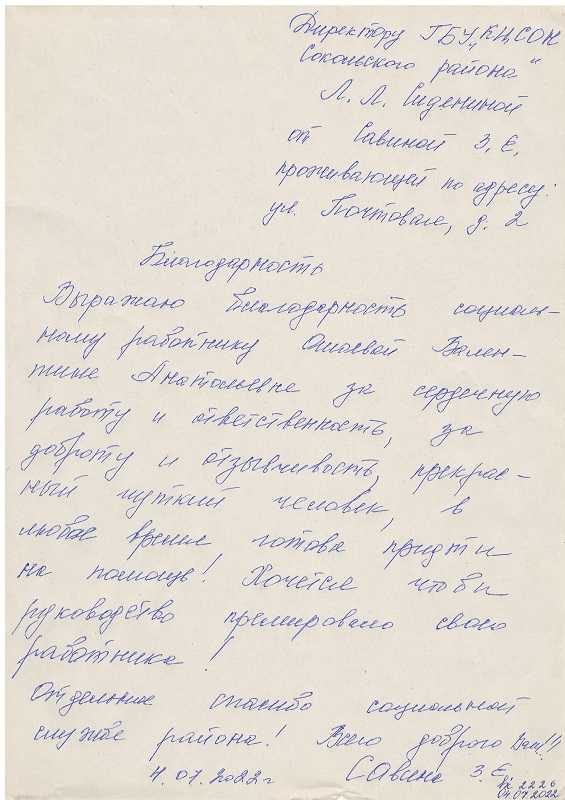 Директору ГБУ „КЦСОН
Сокольского района“
Л. Л. Сидениной
от Савиной З. Е.
проживающей по адресу:
ул. Почтовая, д. 2
Благодарность
Выражаю благодарность социаль-
ному работнику Ошаевой Вален-
тине Анатольевне за сердечную
работу и ответственность, за
доброту и отзывчивость, прекрас-
ный чуткий человек, в
любое время готова придти
на помощь! Хочется чтобы
руководство премировало своего
работника!
Отдельное спасибо социальной
службе района! Всего доброго Вам!!
4.07.2022 г Савина З. Е.
Вх 2226
04.07.2022